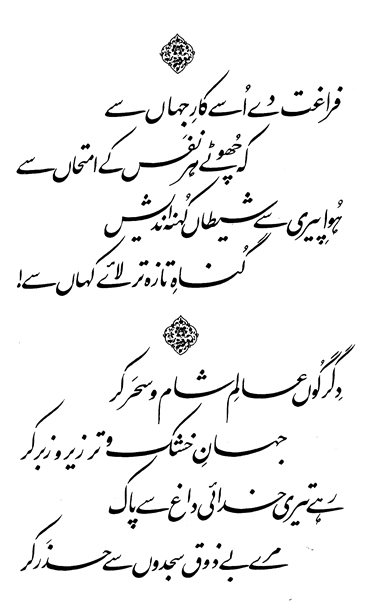 فراغت دے اُسے کارِ جہاں سے
کہ چھُوٹے ہر نفَس کے امتحاں سے
ہُوا پیری سے شیطاں کُہنہ اندیش
گُناہِ تازہ تر لائے کہاں سے!
دِگرگُوں عالمِ شام و سحَر کر
جہانِ خشک و تر زیر و زبر کر
رہے تیری خدائی داغ سے پاک
مرے بے ذوق سجدوں سے حذَر کر